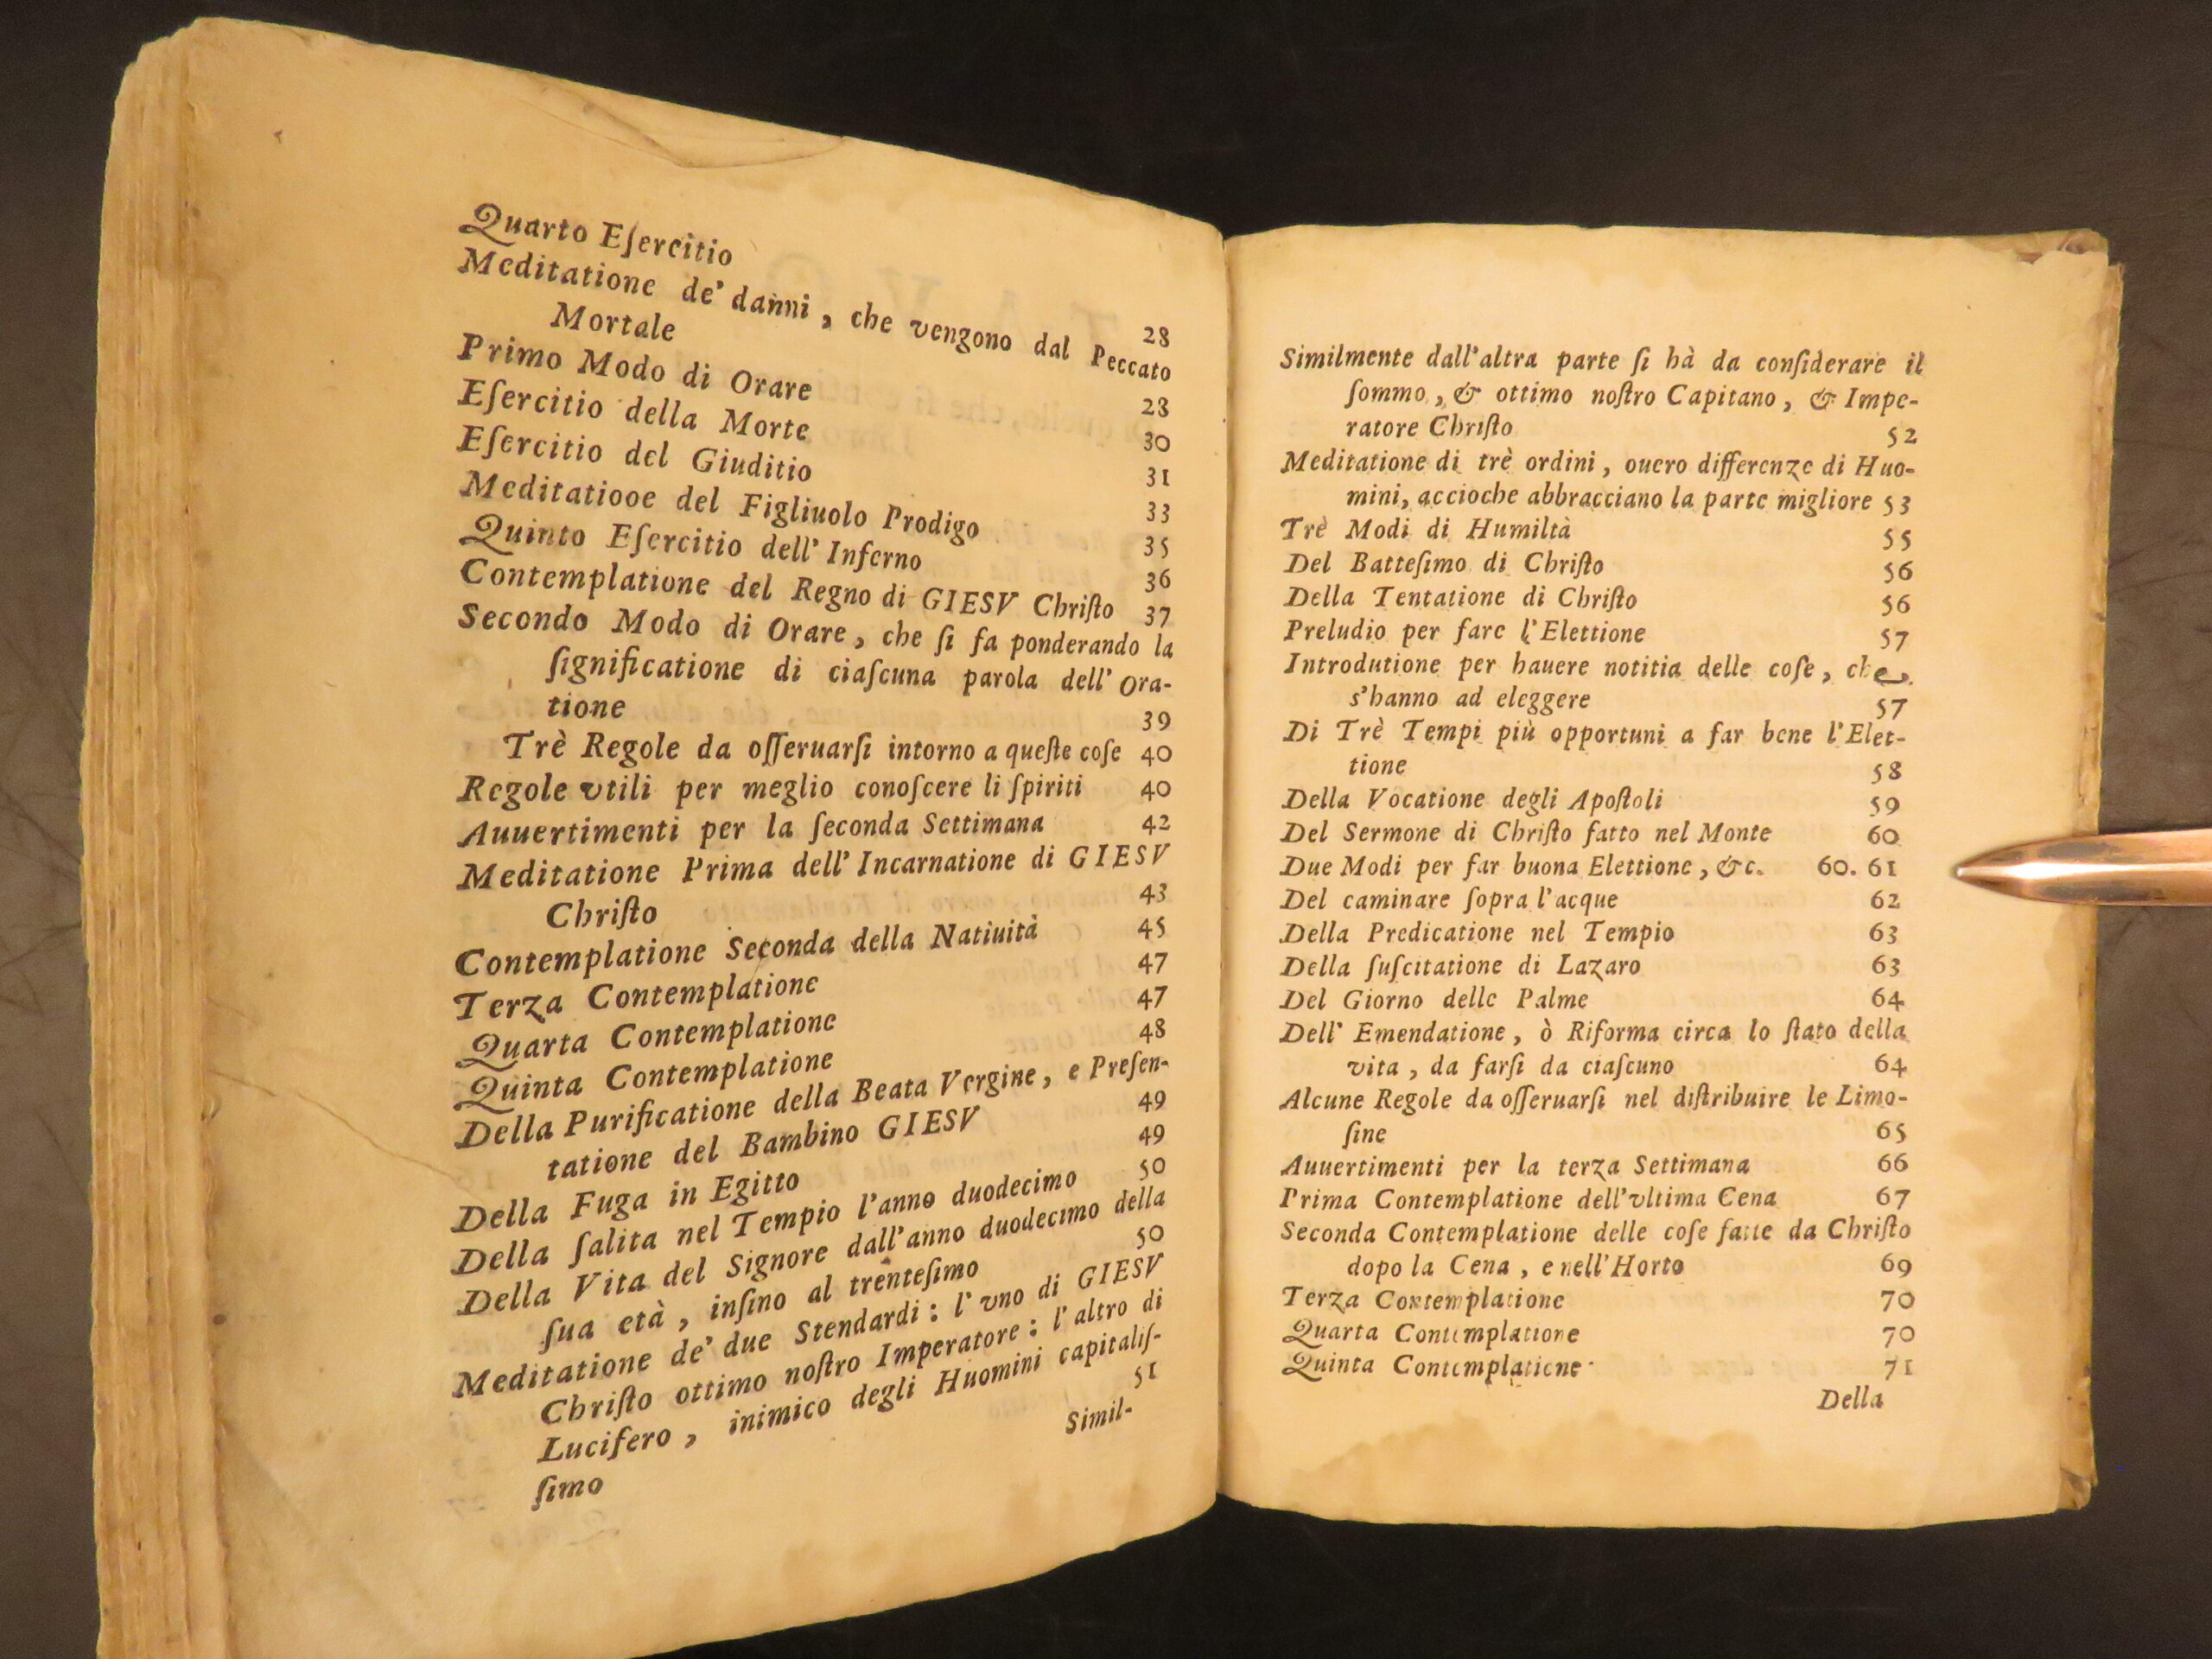 Quarto Eſercitio 28
Meditatione de' danni, che vengono dal Peccato
Mortale 28
Primo Modo di Orare 30
Eſercitio della Morte 31
Eſercitio del Giuditio 33
Meditatiooe del Figliuolo Prodigo 35
Quinto Eſercitio dell' Inferno 36
Contemplatione del Regno di GIESV Chriſto 37
Secondo Modo di Orare, che ſi fa ponderando la
ſignificatione di ciaſcuna parola dell' Ora-
tione 39
Trè Regole da oſſeruarſi intorno a queſte coſe 40
Regole vtili per meglio conoſcere li ſpiriti 40
Auuertimenti per la ſeconda Settimana 42
Meditatione Prima dell' Incarnatione di GIESV
Chriſto 43
Contemplatione Seconda della Natiuità 45
Terza Contemplatione 47
Quarta Contemplatione 47
Quinta Contemplatione 48
Della Purificatione della Beata Vergine, e Preſen-
tatione del Bambino GIESV 49
Della Fuga in Egitto 49
Della ſalita nel Tempio l'anno duodecimo 50
Della Vita del Signore dall'anno duodecimo della
ſua età, inſino al trenteſimo 50
Meditatione de' due Stendardi: l' vno di GIESV
Chriſto ottimo noſtro Imperatore: l' altro di
Lucifero, inimico degli Huomini capitaliſ-
ſimo 51
Simil-
Similmente dall'altra parte ſi hà da conſiderare il
ſommo, & ottimo noſtro Capitano, & Impe-
ratore Chriſto 52
Meditatione di trè ordini, ouero differenze di Huo-
mini, accioche abbracciano la parte migliore 53
Trè Modi di Humiltà 55
Del Batteſimo di Chriſto 56
Della Tentatione di Chriſto 56
Preludio per fare l'Elettione 57
Introdutione per hauere notitia delle coſe, che
s'hanno ad eleggere 57
Di Trè Tempi più opportuni a far bene l'Elet-
tione 58
Della Vocatione degli Apoſtoli 59
Del Sermone di Chriſto fatto nel Monte 60
Due Modi per far buona Elettione, &c. 60. 61
Del caminare ſopra l'acque 62
Della Predicatione nel Tempio 63
Della ſuſcitatione di Lazaro 63
Del Giorno delle Palme 64
Dell' Emendatione, ò Riforma circa lo ſtato della
vita, da farſi da ciaſcuno 64
Alcune Regole da oſſeruarſi nel diſtribuire le Limo-
ſine 65
Auuertimenti per la terza Settimana 66
Prima Contemplatione dell'vltima Cena 67
Seconda Contemplatione delle coſe fatte da Chriſto
dopo la Cena, e nell'Horto 69
Terza Contemplatione 70
Quarta Contemplatione 70
Quinta Contemplatione 71
Della